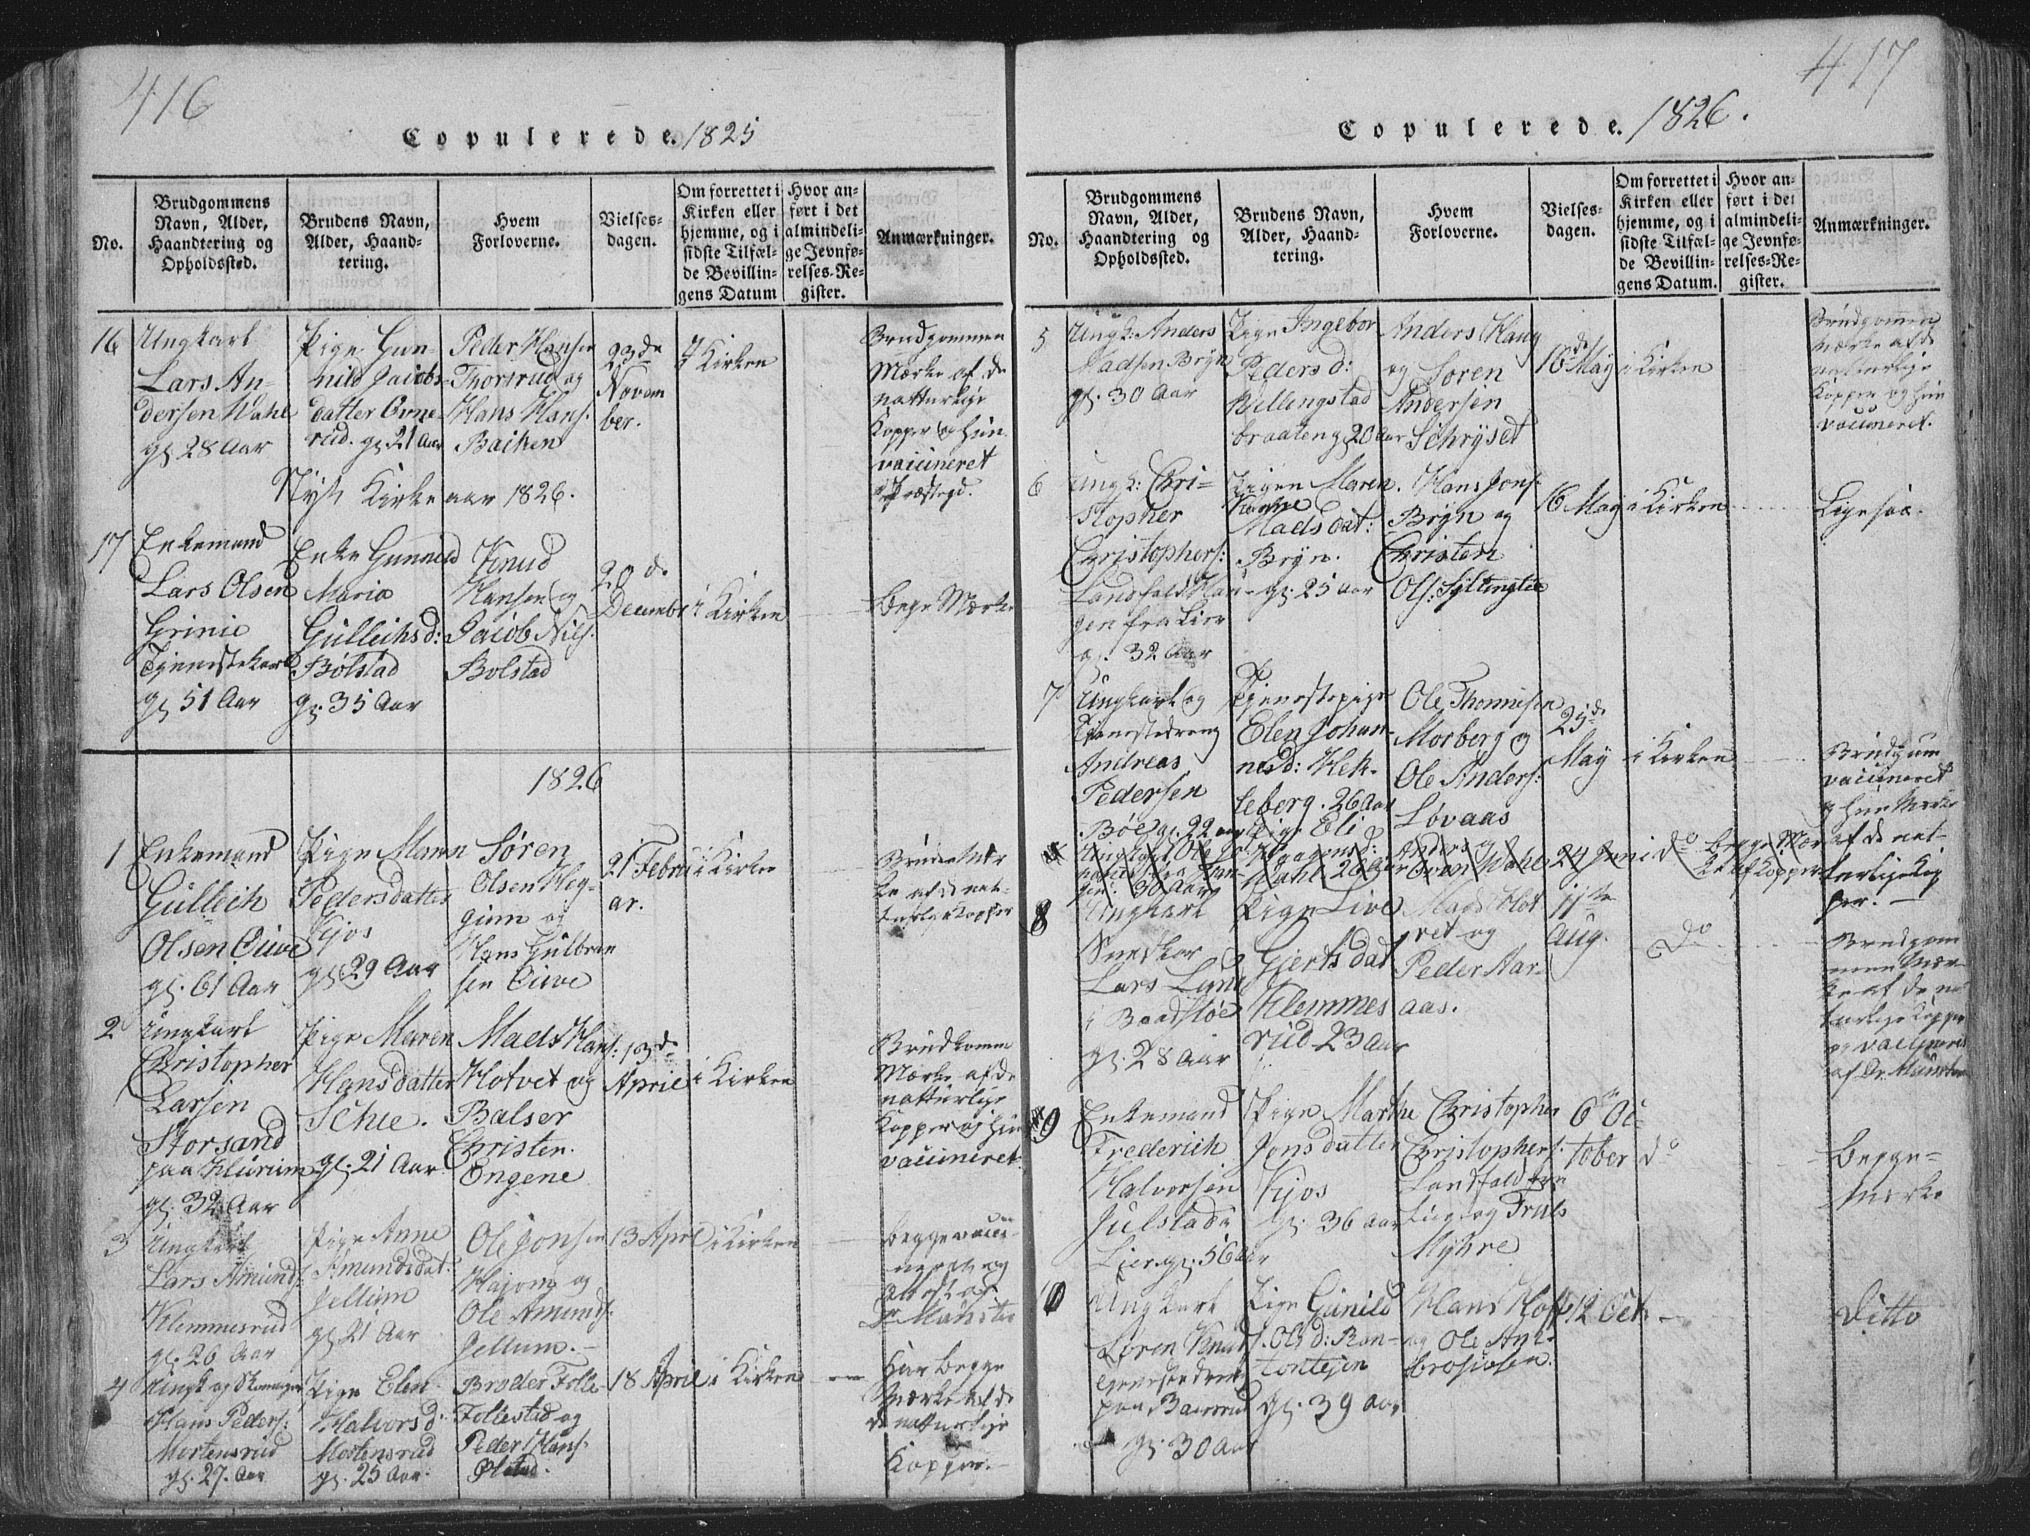 416
Copulerede. 1825
No.
Brudgommens
Navn, Alder,
Haandtering og
Opholdssted.
Brudens Navn,
Alder, Haand-
tering.
Hvem
Forloverne.
Vielses-
dagen.
Om forrettet i
Kirken eller
hjemme, og i
sidste Tilfæl-
de Bevillin-
gens Datum
Hvor an-
ført i det
almindeli-
ge Jevnfø-
relses-Re-
gister.
Anmærkninger.
16
Ungkarl
Lars An-
dersen Wahl
gl. 28 Aar
Pige Gun-
nild Jacobs-
datter Ovne-
rud. gl. 21 Aar
Peder Hansen
Thorsrud og
Hans Hans.
Backen
23de
Novem
ber.
i Kirken
Brudgommen
Mærke af de
naturlige
Kopper og hun
vaccineret
Nyt Kirkeaar 1826.
17
Enkemand
Lars Olsen
Grinie
Tjenestekarl
gl. 51 Aar
Enke Gunnild
Maria
Gullichsd:
Bølstad
gl. 35 Aar
Knud
Hansen og
Jacob Nils.
Bolstad
28de
Decembr
i Kirken
Begge Mærke
1826
1
Enkemand
Gullich
Olsen Cuve
gl. 61 Aar
Pige Maren
Pedersdatter
Kjos
gl. 29 Aar
Søren
Olsen Heg-
ginn og
Hans Gulbran
sen Cuve
21 Febru
ar.
i Kirken
2
Ungkarl
Christopher
Larsen
Storsand
paa Hurum
gl. 32 Aar
Pige Maren
Hansdatter
Schie.
gl. 21 Aar
Mads Hans:
Hotvet og
Balser
Christen.
Engene
13de
April
i Kirken
Brudkomme
Mærke af de
natturlige
Kopper og hun
vaccineret
3
Ungkarl
Lars Amunds:
Klemmesrud
gl. 26 Aar
Pige Anne
Amundsdat:
Jellum
gl. 21 Aar
Ole Jonsen
Hajong og
Ole Amunds:
Jellum.
13 April
i Kirken
Begge vacci-
neret og
Attest af
Dr Münster
4
Ungk og Skomager
Hans Peders:
Mortensrud
gl. 27. Aar
Pige Elen
Halvorsd.
Mortensrud
gl. 25 Aar.
Broder Folle-
Follestad og
Peder Hans.
Ølstad.
18 April
i Kirken
Har begge
Mærke af de
de natturlige
Kopper.
417
Copulerede. 1826.
No.
Brudgommens
Navn, Alder,
Haandtering og
Opholdssted.
Brudens Navn,
Alder, Haand-
tering.
Hvem
Forloverne.
Vielses-
dagen.
Om forrettet i
Kirken eller
hjemme, og i
sidste Tilfæl-
de Bevillin-
gens Datum.
Hvor an-
ført i det
almindeli-
ge Jevnfø-
relses-Re-
gister.
Anmærkninger.
5
Ungk: Anders
Madsen Bryn
gl. 30 Aar
Pige Ingebor
Peders d:
Billingstad
braaten gl 20 Aar
Anders Haug
og Søren
Andersen
Schryset
16de May
i Kirken
Brudgommen
Mærke af de
naturlige
Kopper og hun
vaccineret.
6
Ungk: Chri-
stopher
Christophers:
Landfald Hau-
gen fra Lier
gl. 32 Aar
Pigen Maren
Kirstine
Madsdat:
Bryn.
gl. 25 aar
Hans Jons.
Bryn og
Christen
Ols: Syltinglie
16 May
i Kirken
Ligesaa.
7
Ungkarl og
Tjenestedreng
Andreas
Pedersen
Böe gl. 22 aar
Tjenestepige
Elen Johan-
nesd: Hek-
leberg. 26 Aar
Ole Thommesen
Morberg og
Ole Anders:
Løvaas
25de
May
i Kirken
Brudgum
vaccineret
og hun Mærke
af de nat-
turlige Kop
per.
24 Juni
do
Begge Mær
ke af Kopper
8
Ungkarl
Snedker
Lars Lund
i Baadstøe
gl. 28 Aar
Pige Live
Gjertsdat
Klemmes
rud 23 Aar
Mads Hot
vet og
Peder Aar-
aas.
11te
Aug.
do
Brudgom
men Mær-
ke af de na
turlige Kopper
og vaccineret
af Dr. Münster
9
Enkemand
Frederich
Halvorsen
Julstad i
Lier gl. 56 Aar
Pige Marthe
Jonsdatter
Kjos
gl. 36 Aar
Christopher
Christophers.
Landfald fra
Lier og Truls
Myhre
6te Oc-
tober
do
Begge
Mærke
10
Ungkarl
Søren Knuts.
Tjenestedreng
paa Bærerud
gl. 30 Aar
Pige Gunild
Olsd: Ron-
tontejen
gl. 39 Aar
Hans Hoff
og Ole Am-
brosiusen.
12 Oct.
Ditto